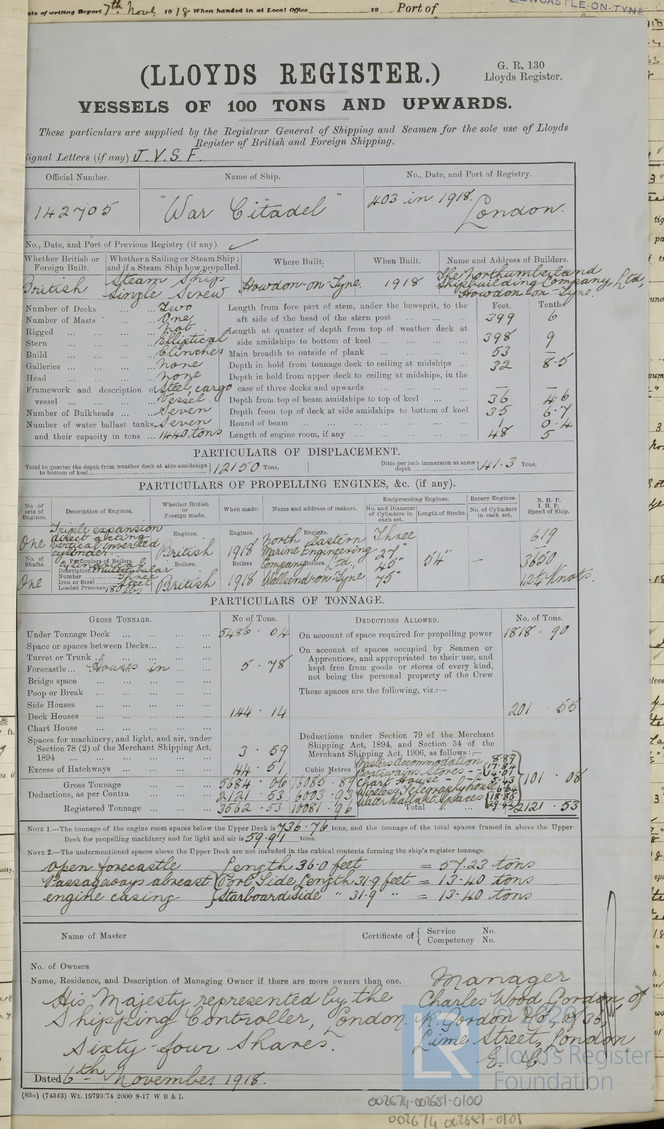 ate of writing Report 7th Novr 1918 When handed in at Local Office 19 Port of NEWCASTLE-ON-TYNE
(LLOYDS REGISTER.)
G. R. 130
Lloyds Register.
VESSELS OF 100 TONS AND UPWARDS.
These particulars are supplied by the Registrar General of Shipping and Seamen for the sole use of Lloyds
Register of British and Foreign Shipping.
Signal Letters (if any) J.V.S.F.
Official Number. Name of Ship. No., Date, and Port of Registry.
142705 "War Citadel" 403 in 1918. London.
No., Date, and Port of Previous Registry (if any).
Whether British or Foreign Built. Whether a Sailing or Steam Ship; and if a Steam Ship how propelled. Where Built. When Built. Name and Address of Builders.
British Steam Ship Single Screw Howdon-on-Tyne 1918 The Northumberland Shipbuilding Company Ltd, Howdon-on-Tyne.
Feet. Tenths
Number of Decks Two Length from fore part of stem, under the bowsprit, to the
Number of Masts One aft side of the head of the stern post 399 6
Rigged not Length at quarter of depth from top of weather deck at
Stern Elliptical side amidships to bottom of keel 398 9
Build Clincher Main breadth to outside of plank 53 —
Galleries none Depth in hold from tonnage deck to ceiling at midships 32 8.5
Head none Depth in hold from upper deck to ceiling at midships, in the
Framework and description of Steel, cargo case of three decks and upwards — —
vessel vessel Depth from top of beam amidships to top of keel 36 4.6
Number of Bulkheads Seven Depth from top of deck at side amidships to bottom of keel 35 6.7
Number of water ballast tanks, Seven Round of beam 1 0.4
and their capacity in tons 1440 tons Length of engine room, if any 48 5
PARTICULARS OF DISPLACEMENT.
Total to quarter the depth from weather deck at side amidships to bottom of keel 12150 Tons. Ditto per inch immersion at same depth 41.3 Tons.
PARTICULARS OF PROPELLING ENGINES, &c. (if any).
No. of sets of Engines. Description of Engines. Whether British or Foreign made. When made. Name and address of makers. Reciprocating Engines. Rotary Engines. N. H. P.
No. and Diameter of Cylinders in each set. Length of Stroke. No. of Cylinders in each set. I. H. P. Speed of Ship.
One Triple expansion direct acting vertical inverted cylinder. Engines. British Engines. 1918 Engines. North Eastern Marine Engineering Company Ltd, Three 27" 45" 75" 54" — 619
3650
No. of Shafts. Particulars of Boilers. Boilers. Boilers Boilers.
One Description Multitubular British 1918 Wallsend-on-Tyne 12¼ Knots.
Number Three
Iron or Steel Steel
Loaded Pressure 180 lbs
PARTICULARS OF TONNAGE.
GROSS TONNAGE. No of Tons. DEDUCTIONS ALLOWED. No. of Tons.
Under Tonnage Deck 5486.04 On account of space required for propelling power 1818.90
Space or spaces between Decks
Turret or Trunk
Forecastle Houses in 5.78
Bridge space
Poop or Break
Side Houses
Deck Houses 144.14
Chart House
Spaces for machinery, and light, and air, under Section 78 (2) of the Merchant Shipping Act, 1894 3.59
Excess of Hatchways 44.51
On account of spaces occupied by Seamen or Apprentices, and appropriated to their use, and kept free from goods or stores of every kind, not being the personal property of the Crew
These spaces are the following, viz.:— 201.55
Deductions under Section 79 of the Merchant Shipping Act, 1894, and Section 54 of the Merchant Shipping Act, 1906, as follows:—
Cubic Metres
Masters Accommodation
Boatswains Stores
Chart House
Wireless Telegraphy house
Water Ballast Spaces
101.08
Gross Tonnage 5684.06 16085.89
Deductions, as per Contra 2121.53 6003.93
Registered Tonnage 3562.53 10081.96 Total 2121.53
NOTE 1.—The tonnage of the engine room spaces below the Upper Deck is 736.76 tons, and the tonnage of the total spaces framed in above the Upper
Deck for propelling machinery and for light and air is 59.91 tons.
NOTE 2.—The undermentioned spaces above the Upper Deck are not included in the cubical contents forming the ship's register tonnage.
Open forecastle Length 36.0 feet = 57.23 tons
Passageways abreast (Port Side Length 31.9 feet = 13.40 tons
engine casing (Starboard side " 31.9 " = 13.40 tons
Name of Master Certificate of { Service No.
Competency No.
No. of Owners
Name, Residence, and Description of Managing Owner if there are more owners than one.
His Majesty represented by the
Shipping Controller, London.
Sixty four Shares.
Manager
Charles Wood Gordon of
Lime Street, London
E. C.
Dated 6th November 1918.
(830) (74343) Wt. 19793/74 2000 8-17 W B & L
© 2020
Lloyd's Register
Foundation
002674-002681-0100
002674-002681-0101